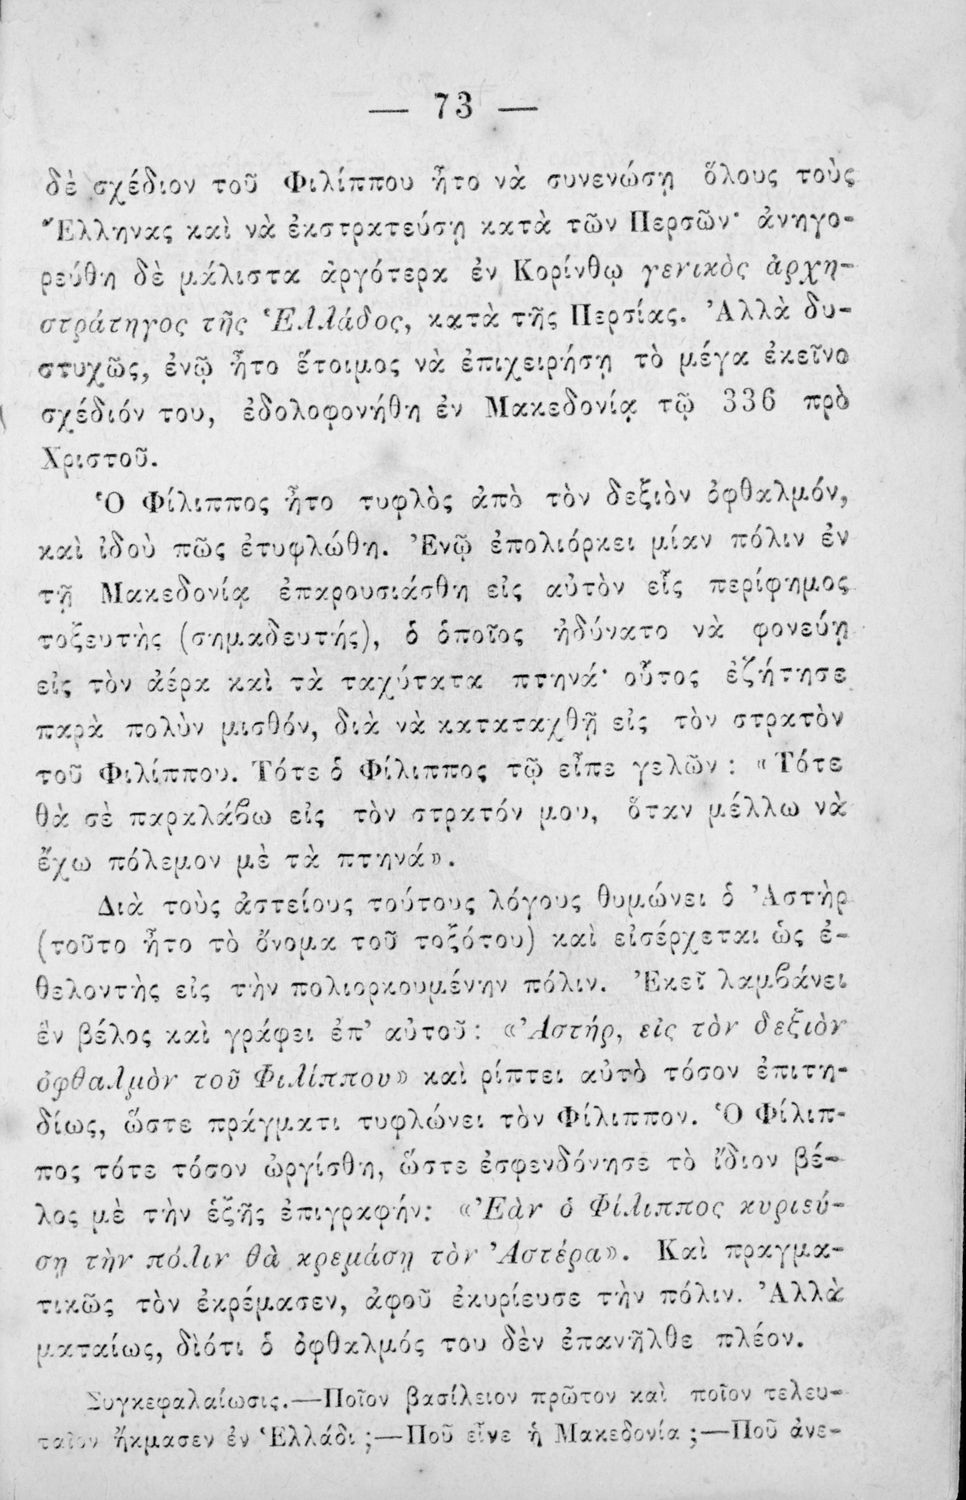 — 73 —
δὲ σχέδιον τοῦ Φιλίππου ἦτο νὰ συνενώσῃ ὅλους τοὺς
Ἕλληνας καὶ νὰ ἐκστρατεύσῃ κατὰ τῶν Περσῶν· ἀνηγο-
ρεύθη δὲ μάλιστα ἀργότερα ἐν Κορίνθῳ γενικὸς ἀρχη-
στράτηγος τῆς Ἑλλάδος, κατὰ τῆς Περσίας. Ἀλλὰ δυ-
στυχῶς, ἐνῷ ἦτο ἕτοιμος νὰ ἐπιχειρήσῃ τὸ μέγα ἐκεῖνο
σχέδιόν του, ἐδολοφονήθη ἐν Μακεδονίᾳ τῷ 336 πρὸ
Χριστοῦ.
Ὁ Φίλιππος ἦτο τυφλὸς ἀπὸ τὸν δεξιὸν ὀφθαλμόν,
καὶ ἰδοὺ πῶς ἐτυφλώθη. Ἐνῷ ἐπολιόρκει μίαν πόλιν ἐν
τῇ Μακεδονίᾳ ἐπαρουσιάσθη εἰς αὐτὸν εἷς περίφημος
τοξευτὴς (σημαδευτής), ὁ ὁποῖος ἠδύνατο νὰ φονεύῃ
εἰς τὸν ἀέρα καὶ τὰ ταχύτατα πτηνά· οὗτος ἐζήτησε
παρὰ πολὺν μισθόν, διὰ νὰ καταταχθῇ εἰς τὸν στρατὸν
τοῦ Φιλίππου. Τότε ὁ Φίλιππος τῷ εἶπε γελῶν : «Τότε
θὰ σὲ παραλάβω εἰς τὸν στρατόν μου, ὅταν μέλλω νὰ
ἔχω πόλεμον μὲ τὰ πτηνά».
Διὰ τοὺς ἀστείους τούτους λόγους θυμώνει ὁ Ἀστὴρ
(τοῦτο ἦτο τὸ ὄνομα τοῦ τοξότου) καὶ εἰσέρχεται ὡς ἐ-
θελοντὴς εἰς τὴν πολιορκουμένην πόλιν. Ἐκεῖ λαμβάνει
ἓν βέλος καὶ γράφει ἐπ’ αὐτοῦ : «Ἀστήρ, εἰς τὸν δεξιὸν
ὀφθαλμὸν τοῦ Φιλίππου» καὶ ρίπτει αὐτὸ τόσον ἐπιτη-
δίως, ὥστε πράγματι τυφλώνει τὸν Φίλιππον. Ὁ Φίλιπ-
πος τότε τόσον ὠργίσθη, ὥστε ἐσφενδόνησε τὸ ἴδιον βέ-
λος μὲ τὴν ἑξῆς ἐπιγραφήν: «Ἐὰν ὁ Φίλιππος κυριεύ-
σῃ τὴν πόλιν θὰ κρεμάσῃ τὸν Ἀστέρα». Καὶ πραγμα-
τικῶς τὸν ἐκρέμασεν, ἀφοῦ ἐκυρίευσε τὴν πόλιν. Ἀλλὰ
ματαίως, διότι ὁ ὀφθαλμός του δὲν ἐπανῆλθε πλέον.
Συγκεφαλαίωσις.—Ποῖον βασίλειον πρῶτον καὶ ποῖον τελευ-
ταῖον ἤκμασεν ἐν Ἑλλάδι ;—Ποῦ εἶνε ἡ Μακεδονία ;—Ποῦ ἀνε-